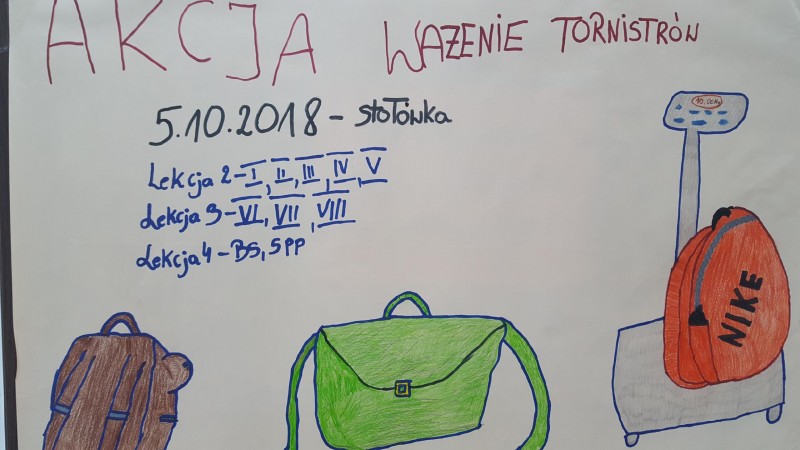 AKCJA WAŻENIE TORNISTRÓW
5.10.2018 - stołówka
Lekcja 2 - I, II, III, IV, V
Lekcja 3 - VI, VII, VIII
Lekcja 4 - BS, SPP
NIKE